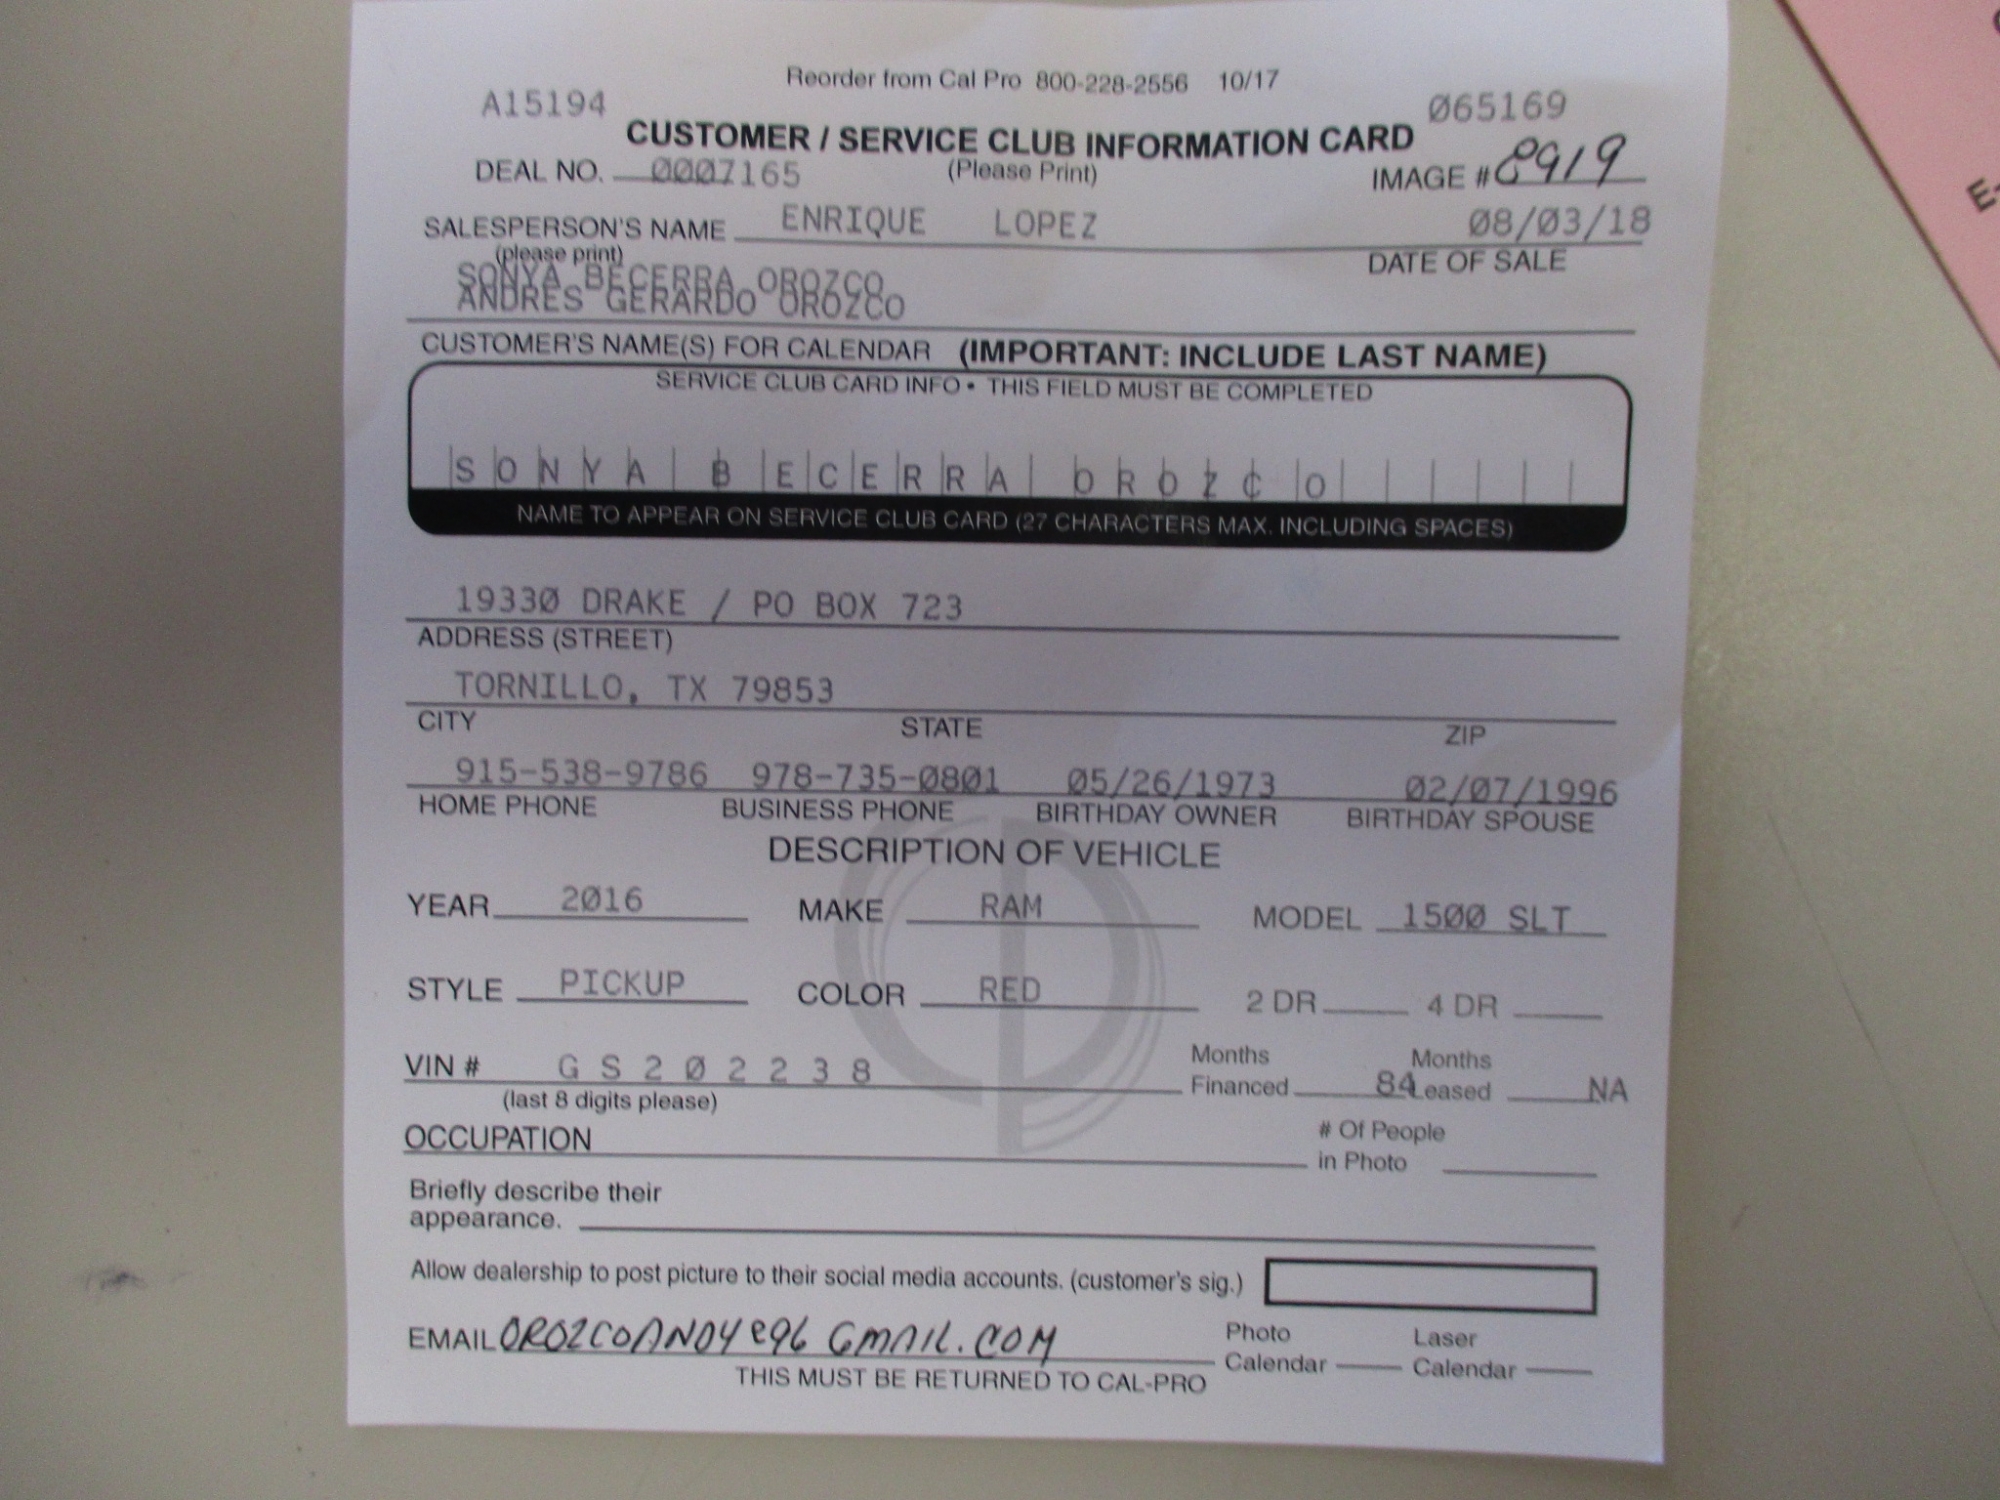 Reorder from Cal Pro 800-228-2556 10/17
A15194 065169
CUSTOMER / SERVICE CLUB INFORMATION CARD
DEAL NO. 0007165 (Please Print) IMAGE # 8919
SALESPERSON'S NAME ENRIQUE LOPEZ 08/03/18
(please print) DATE OF SALE
SONYA BECERRA OROZCO
ANDRES GERARDO OROZCO
CUSTOMER'S NAME(S) FOR CALENDAR (IMPORTANT: INCLUDE LAST NAME)
SERVICE CLUB CARD INFO • THIS FIELD MUST BE COMPLETED
SONYA BECERRA OROZCO
NAME TO APPEAR ON SERVICE CLUB CARD (27 CHARACTERS MAX. INCLUDING SPACES)
19330 DRAKE / PO BOX 723
ADDRESS (STREET)
TORNILLO, TX 79853
CITY STATE ZIP
915-538-9786 978-735-0801 05/26/1973 02/07/1996
HOME PHONE BUSINESS PHONE BIRTHDAY OWNER BIRTHDAY SPOUSE
DESCRIPTION OF VEHICLE
YEAR 2016 MAKE RAM MODEL 1500 SLT
STYLE PICKUP COLOR RED 2 DR 4 DR
VIN # GS202238 Months Financed 84 Months Leased NA
(last 8 digits please)
OCCUPATION # Of People in Photo
Briefly describe their
appearance.
Allow dealership to post picture to their social media accounts. (customer's sig.)
EMAIL OROZCOANDYe96 GMAIL.COM Photo Calendar Laser Calendar
THIS MUST BE RETURNED TO CAL-PRO